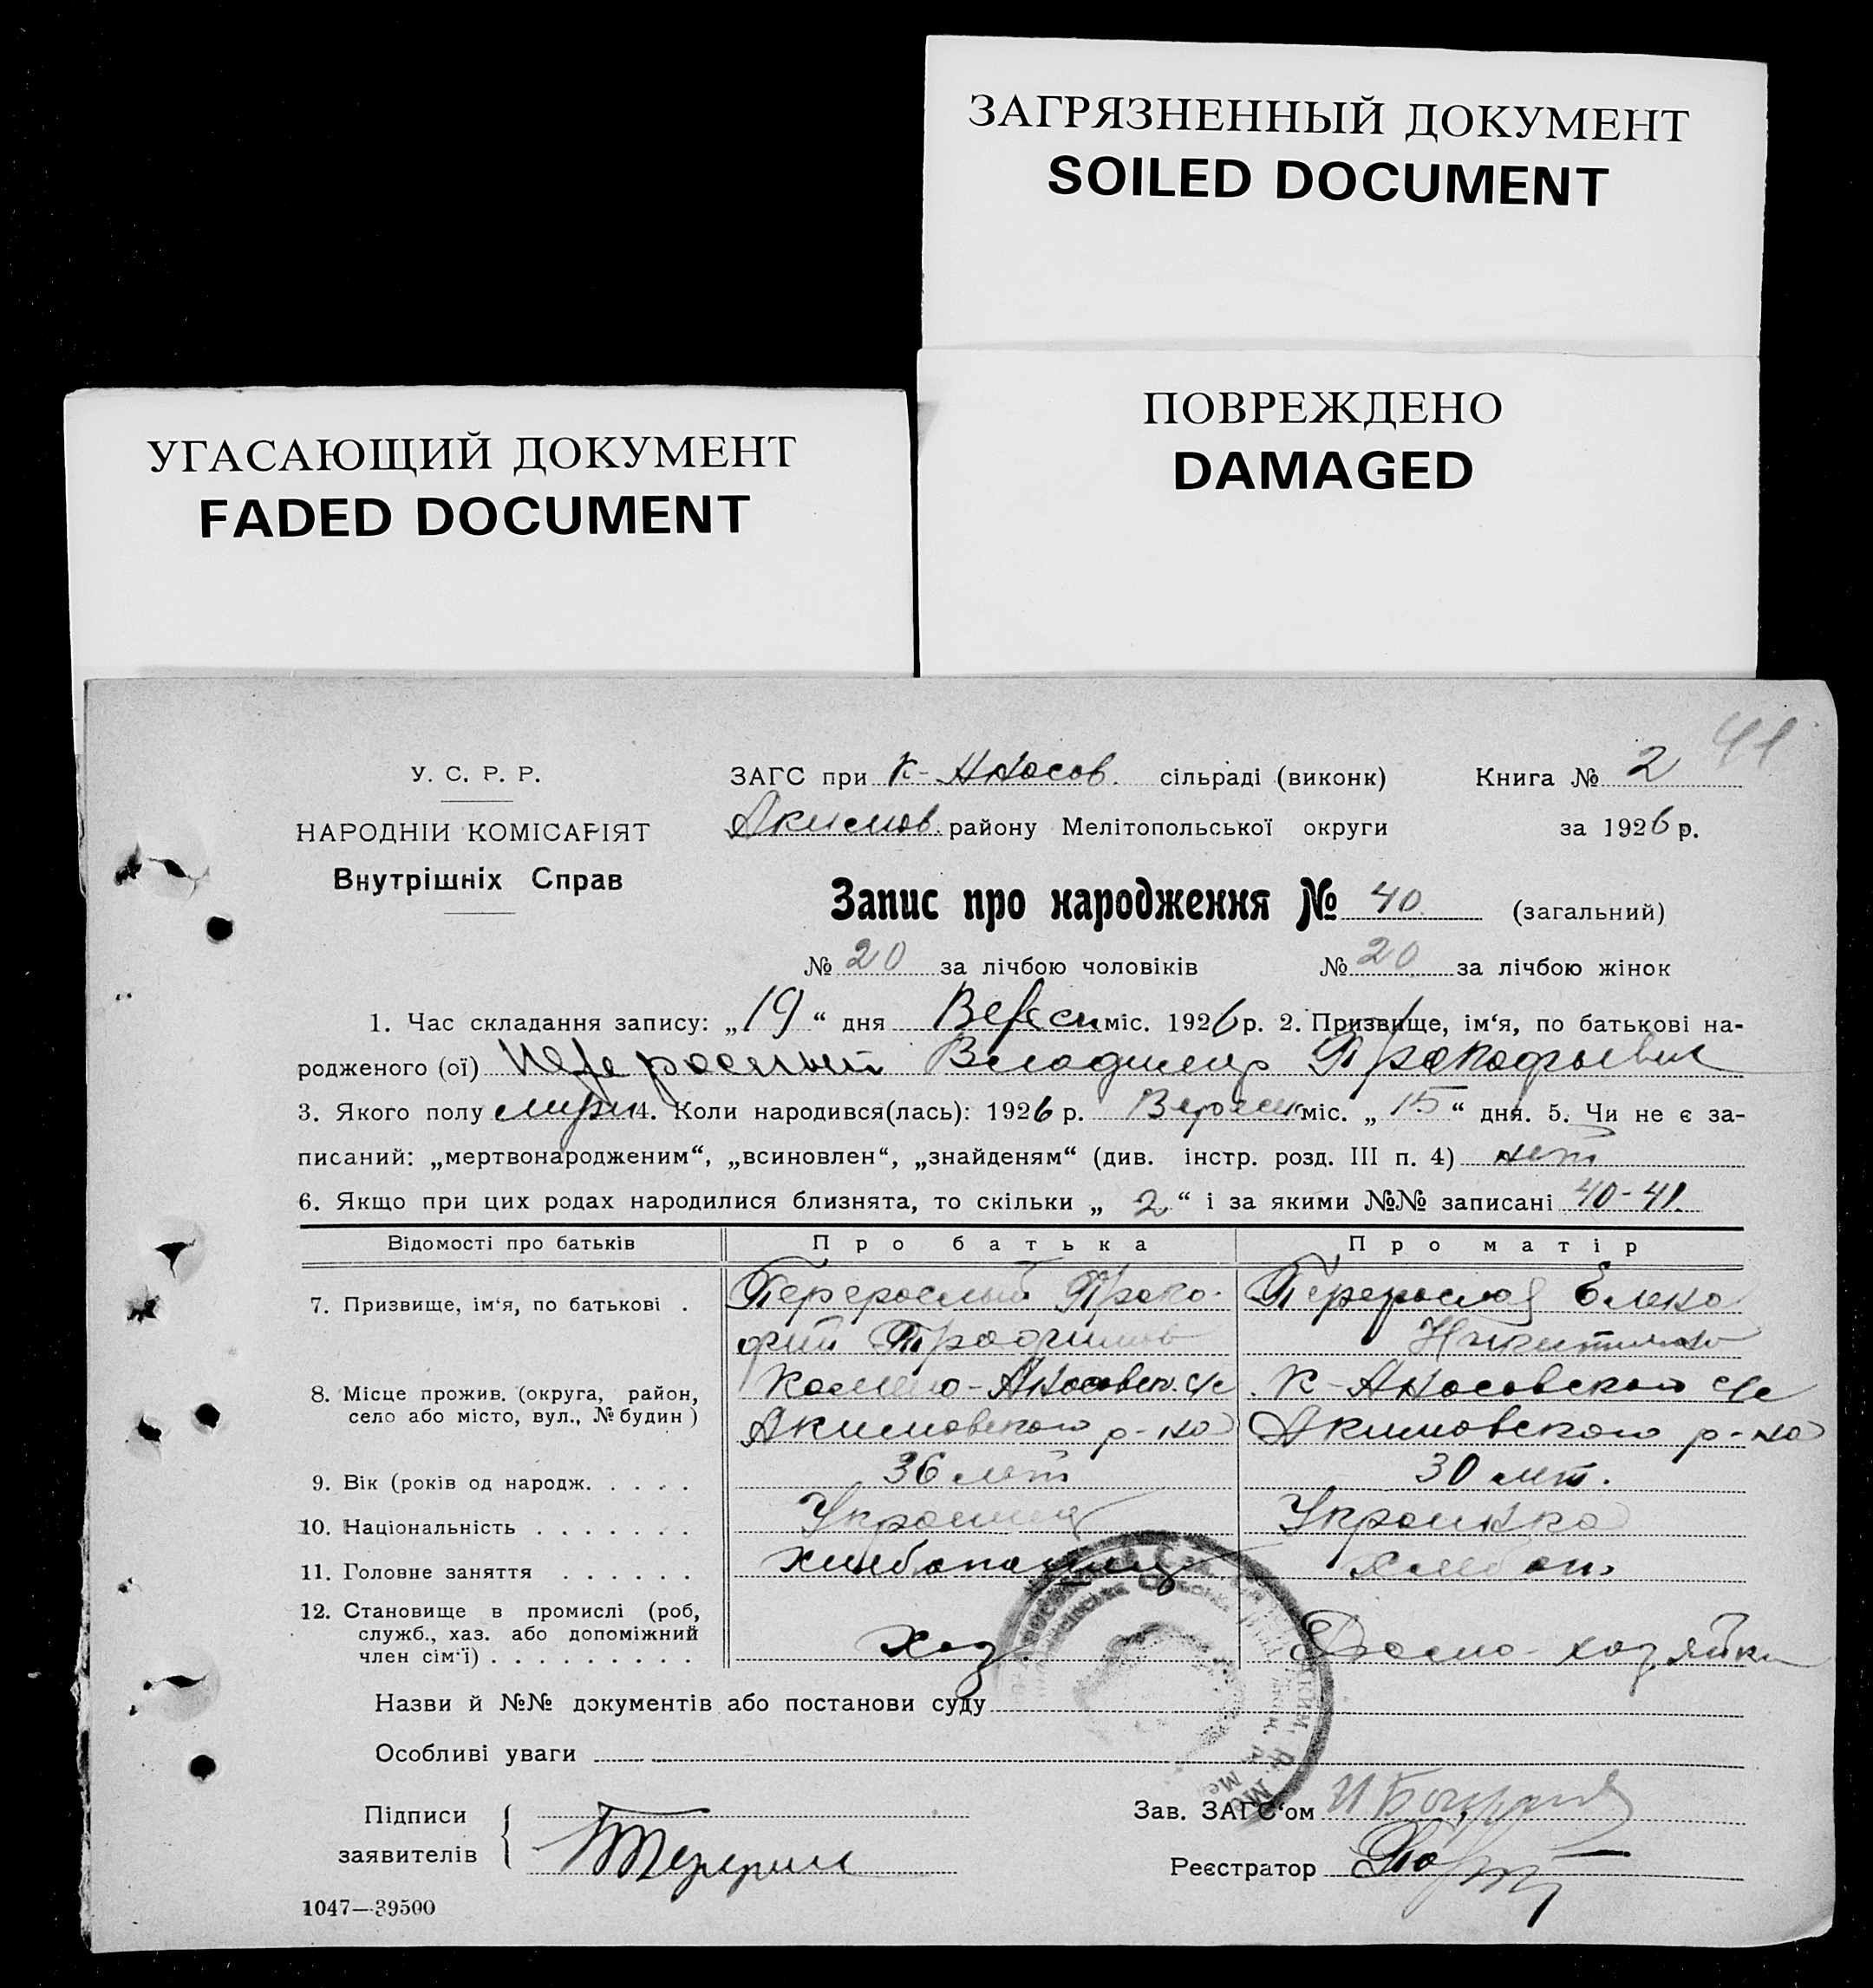 ЗАГРЯЗНЕННЫЙ ДОКУМЕНТ
SOILED DOCUMENT
ПОВРЕЖДЕНО
DAMAGED
УГАСАЮЩИЙ ДОКУМЕНТ
FADED DOCUMENT
41
У. С. Р. Р.
НАРОДНІИ КОМІСАРІЯТ
Внутрішніх Справ
ЗАГС при К-Аносов. сільраді (виконк) Книга № 2
Акимов. району Мелітопольської округи за 1926 р.
Запис про народження № 40 (загальний)
№ 20 за лічбою чоловіків № 20 за лічбою жінок
1. Час складання запису: „19“ дня Вересн міс. 1926 р. 2. Призвище, ім‘я, по батькові на-
родженого (ої) Перерослый Владимир Прокофьевич
3. Якого полу муж 4. Коли народився(лась): 1926 р. Вересн міс. „15“ дня. 5. Чи не є за-
писаний: „мертвонародженим“, „всиновлен“, „знайденям“ (див. інстр. розд. III п. 4) нет
6. Якщо при цих родах народилися близнята, то скільки „2“ і за якими №№ записані 40-41.
Відомості про батьків Про батька Про матір
7. Призвище, ім‘я, по батькові . Перерослый Проко- Перерослая Елена
фий Трофимов Никитична
8. Місце прожив. (округа, район, село або місто, вул., № будин) Камено-Аносовск. с/с К-Аносовской с/с
Акимовского р-на Акимовского р-на
9. Вік (років од народж. . . . . 36 лет 30 лет.
10. Національність . . . . . . . Украинец Украинка
11. Головне заняття . . . . . . Хлебопашец Хлебоп.
12. Становище в промислі (роб, служб., хаз. або допоміжний член сім‘ї) . . . . . . . . . Хоз. Домо-хозяйка
Назви й №№ документів або постанови суду
Особливі уваги
Підписи заявителів
Зав. ЗАГС‘ом
Реєстратор
1047—39500